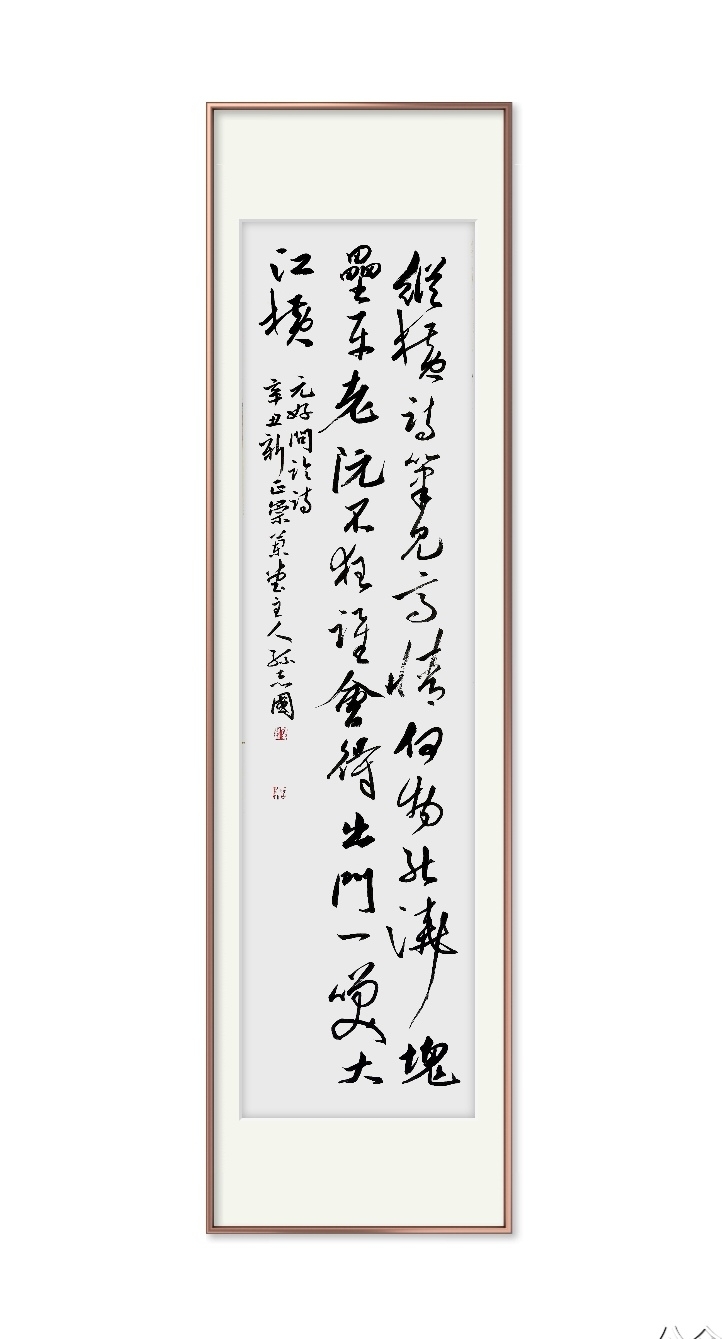 縱橫詩筆見高情何物能澆塊
壘平老阮不狂誰會得出門一笑大
江橫
元好問論詩
辛丑新正榮堂主人孫志國